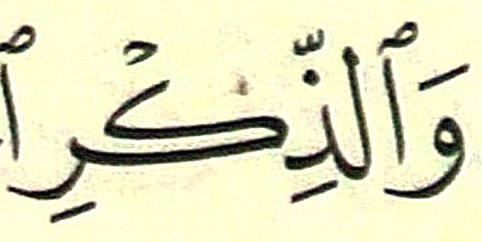 وَٱلذِّكْرِ ٱ